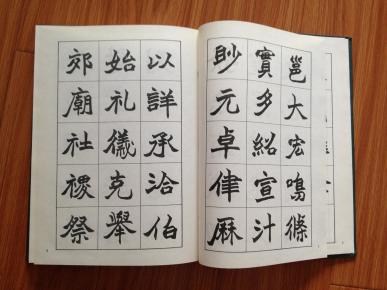 邕大宏鳴條
實多紹宣汁
眇元卓律厤
以詳承洽伯
始礼儀克舉
郊廟社禝祭